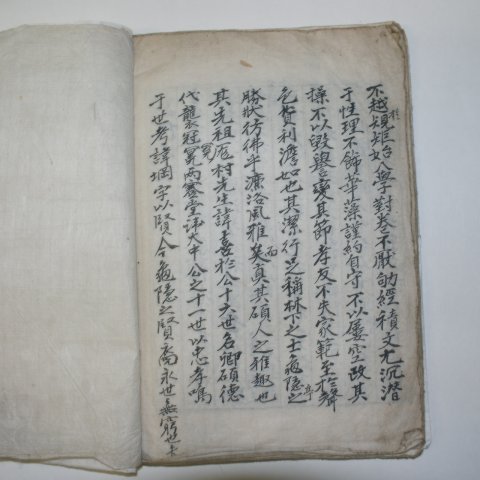 不越規矩始入學對卷不厭劬經積文尤沉潛
于性理不飾華藻謹約自守不以屢空改其
操不以毀譽變其節孝友不失家範至於聲
色貨利澹如也其潔行足稱林下之士龜隱之
勝狀彷佛乎濂洛風雅矣真其碩人之雅趣也
其先祖 村先生諱 於公十六世名卿碩德
代襲冠冕兩 堂諱大中公之十一世以忠孝鳴
于世考諱堈字以賢今龜隱之賢裔永世無窮也